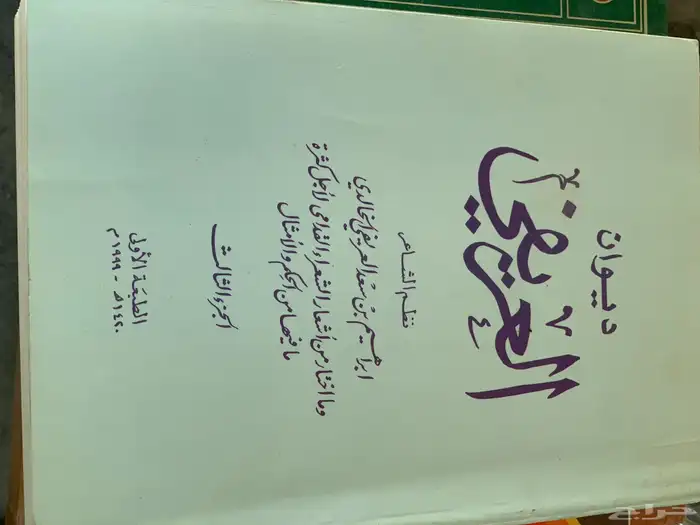 ديوان
العريفي
نظم الشاعر
ابراهيم بن سعد العريفي الخالدي
وما اختار من أشعار الشعراء القدامى لأجل كثرة
ما فيها من الحكم والأمثال
الجزء الثالث
الطبعة الأولى
١٤٢٠هـ - ١٩٩٩م
حراج